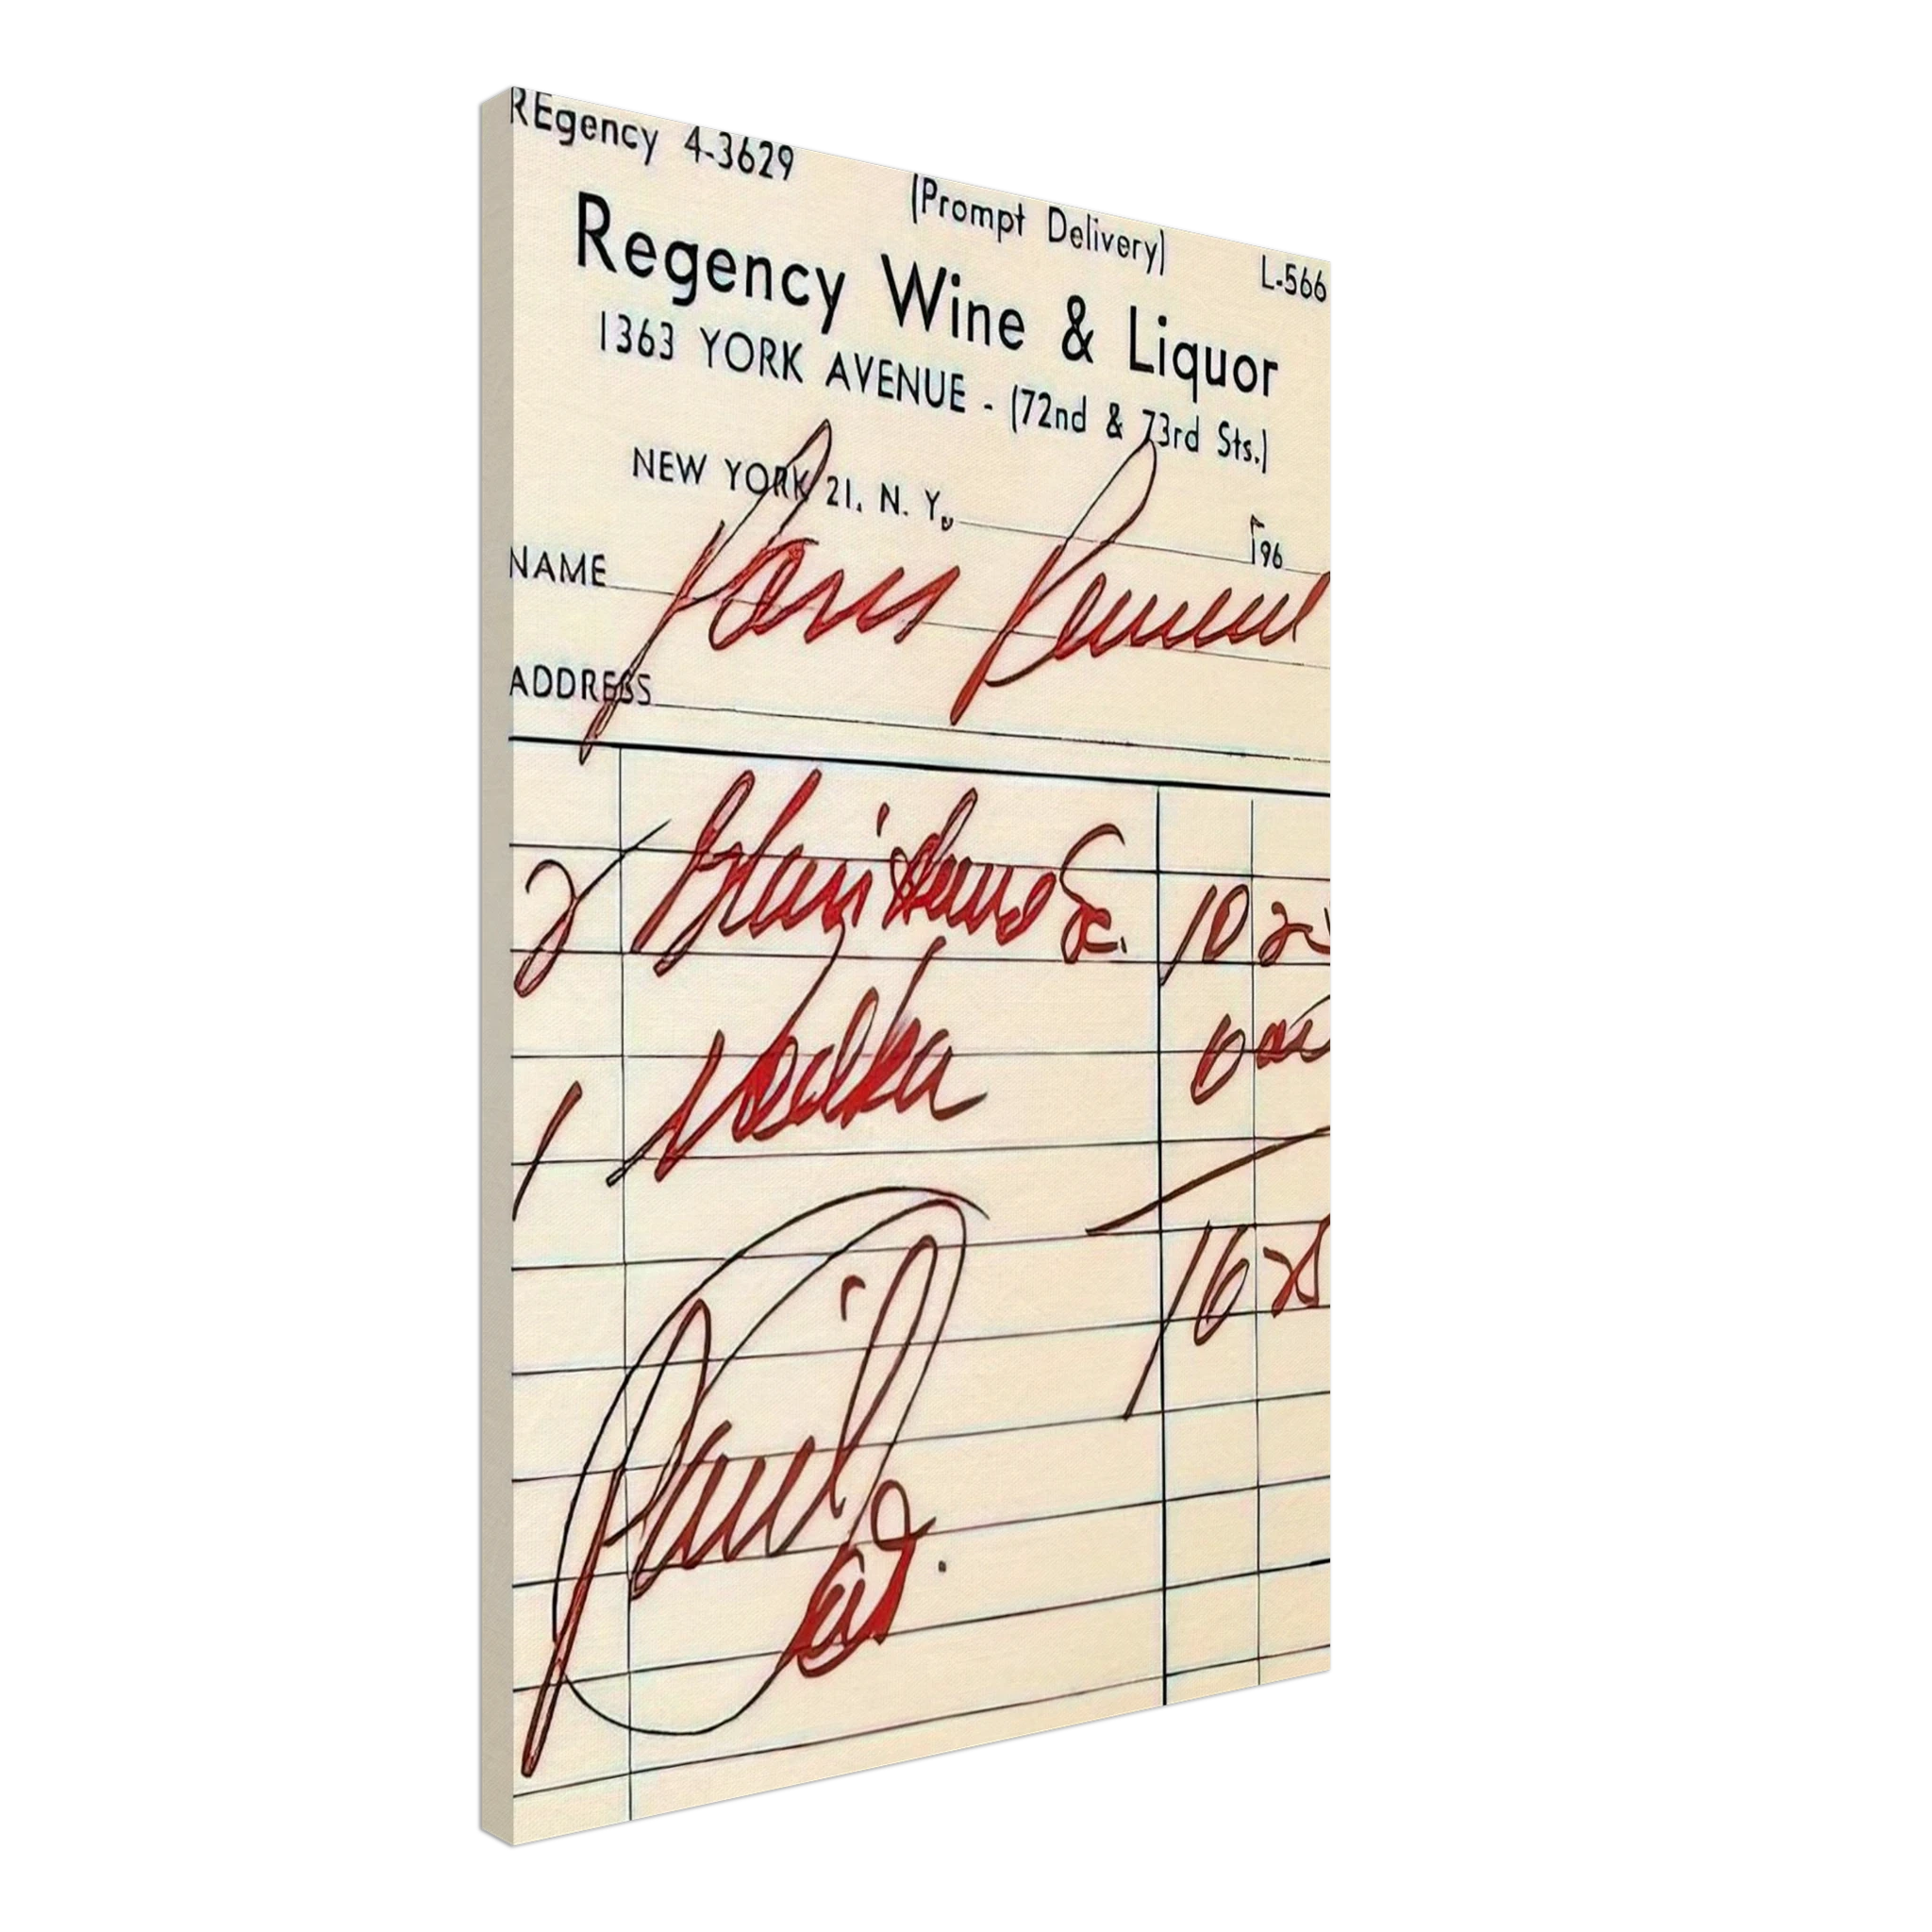 REgency 4-3629
(Prompt Delivery)
L-566
Regency Wine & Liquor
1363 YORK AVENUE - (72nd & 73rd Sts.)
NEW YORK 21, N. Y., 196
NAME
ADDRESS
2 10 25
1 Vodka 6 00
16 25
Paid